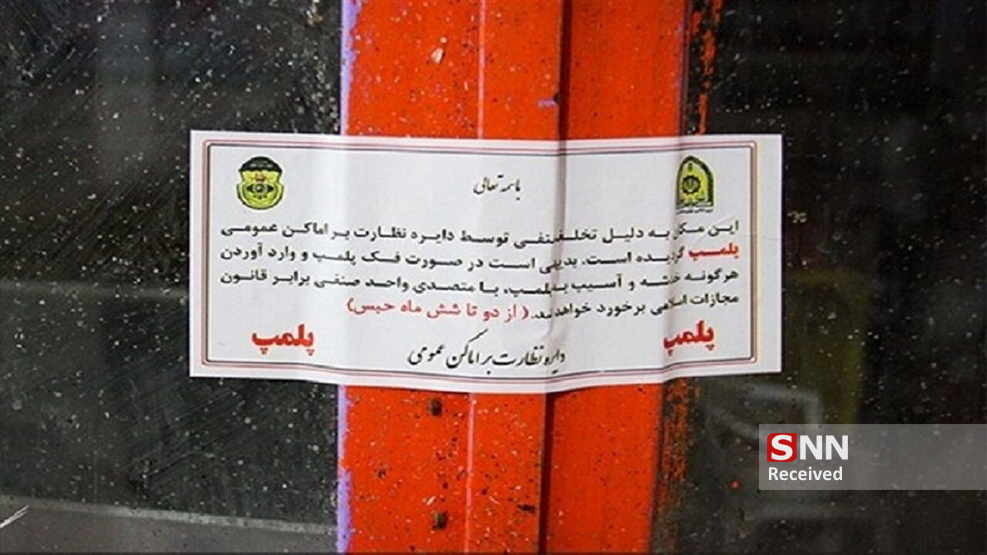 باسمه تعالی
این مکان به دلیل تخلف صنفی توسط دایره نظارت بر اماکن عمومی
پلمپ گردیده است. بدیهی است در صورت فک پلمپ و وارد آوردن
هرگونه خدشه و آسیب به پلمپ، با متصدی واحد صنفی برابر قانون
مجازات اسلامی برخورد خواهد شد. (از دو تا شش ماه حبس)
پلمپ
پلمپ
دایره نظارت بر اماکن عمومی
SNN
Received